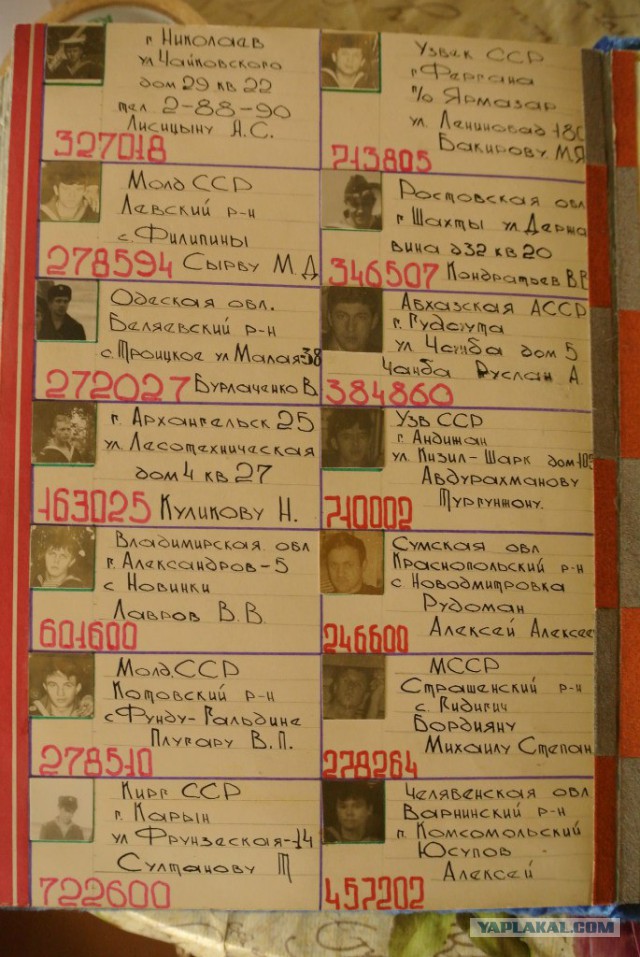 г Николаев
ул Чайковского
дом 29 кв 22
тел 2-88-90
Лисицыну А.С.
327018
Молд ССР
Левский р-н
с. Филипины
278594 Сырву М.Д
Одеская обл.
Беляевский р-н
с. Троицкое ул Малая 38
272027 Бурлаченко В
г. Архангельск 25
ул. Лесотехническая
дом 4 кв 27
163025 Куликову Н.
Владимирская обл
г. Александров-5
с Новинки
Лавров В.В.
601600
Молд.ССР
Котовский р-н
с Фунду-Гальдине
Плугару В.П.
278510
Кирг ССР
г. Карын
ул Фрунзеская-14
Султанову Т
722600
Узбек ССР
г Фергана
п/о Ярмазар
ул. Лениновад 180
Бакирову М.Я
713805
Ростовская обл
г Шахты ул Держа
вина д32 кв 20
346507 Кондратьев В В
Абхазская АССР
г. Гудаута
ул Чанба дом 5
Чанба Руслан А
384860
Узб ССР
г. Андижан
ул. Кизил-Шарк дом 105
Абдурахманову
Тургунжону.
710002
Сумская обл
Краснопольский р-н
с Новодмитровка
Рудоман
246600 Алексей Алексе
МССР
Страшенский р-н
с. Гидигич
Бордияну
Михаилу Степан
278264
Челявенская обл
Варнинский р-н
п. Комсомольский
Юсупов
Алексей
457202
YAPLAKAL.COM